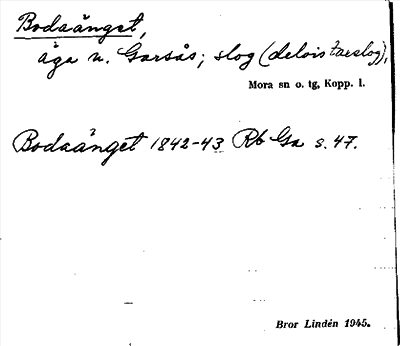 Bodaänget,
äga n. Garsås; slog (delvis träslog),
Mora sn o. tg, Kopp. l.
Bodaänget 1842-43 Rb Ga s. 47.
Bror Lindén 1945.